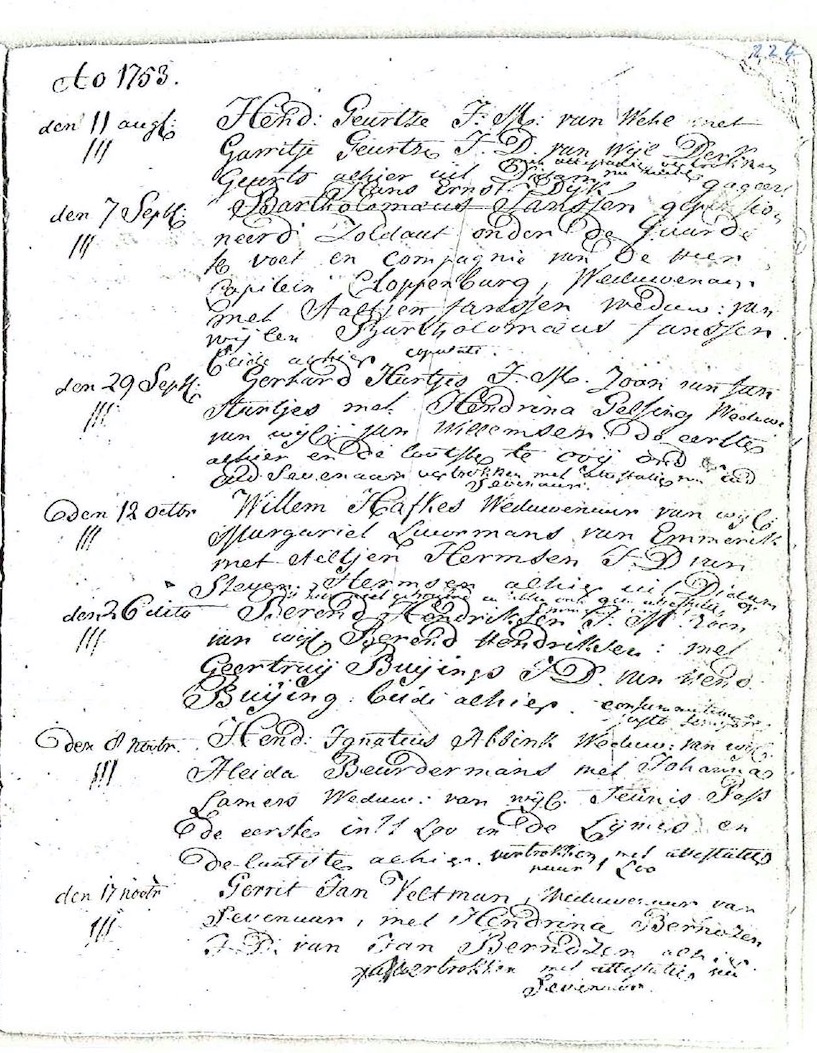 224
Ao 1753.
den 11 augt: Hend: Geurtze J: M: van Wehe met
/// Garritje Geurtze J. D. van Wijl Derk
Geurts achier uit Didam
Hans Ernst Dijk gageert
den 7 Sept: Bartholomaeus Janssen gepension
/// neerd Zoldaat onder de Guarde
te voet en Compagnie van de heer
Capitein Cloppenburg, Weduwenaar
met Aaltjen Janssen weduw: van
wijlen Bartholomaeus Janssen.
beide achier copulati.
den 29 Sept: Gerhard Hurtjes J. M. Zoon van Jan
/// Hurtjes met Hendrina Gelsing Weduwe
van wijl: Jan Willemsen de eerste
achier en de laatste te ooij
oud Sevenaar vertrokken met attestatie
Sevenaar.
den 12 octbr Willem Hafkes Weduwenaar van wijl:
/// Margariet Luurmans van Emmerik
met Aeltjen Hermsen J D van
Steven Hermsen achier uit Didam
den 26 dito Berend Hendriksen J. M. Zoon
/// van wijl Berend Hendriksen: met
Geertruij Buijings J D. van Hend.
Buijing beide achier.
den 8 novbr. Hend: Ignatius Absink Weduw: van wijl:
/// Aleida Beurdermans met Johanna
Lamers Weduw: van wijl. Teunis Pass
de eerste in 't Loo in de Lijmers en
de laatste achier. vertrokken met attestatie
naar 't Loo
den 17 novbr Gerrit Jan Veltman, Weduwenaar van
/// Sevenaar, met Hendrina Berndzen
J. D. van Jan Berndzen achier.
vertrokken met attestatie na
Sevenaar.